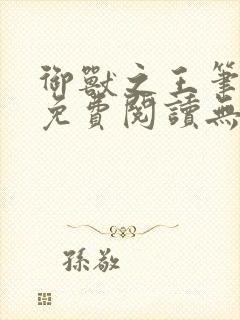 御獸之王筆
免費閱讀無
孫敬